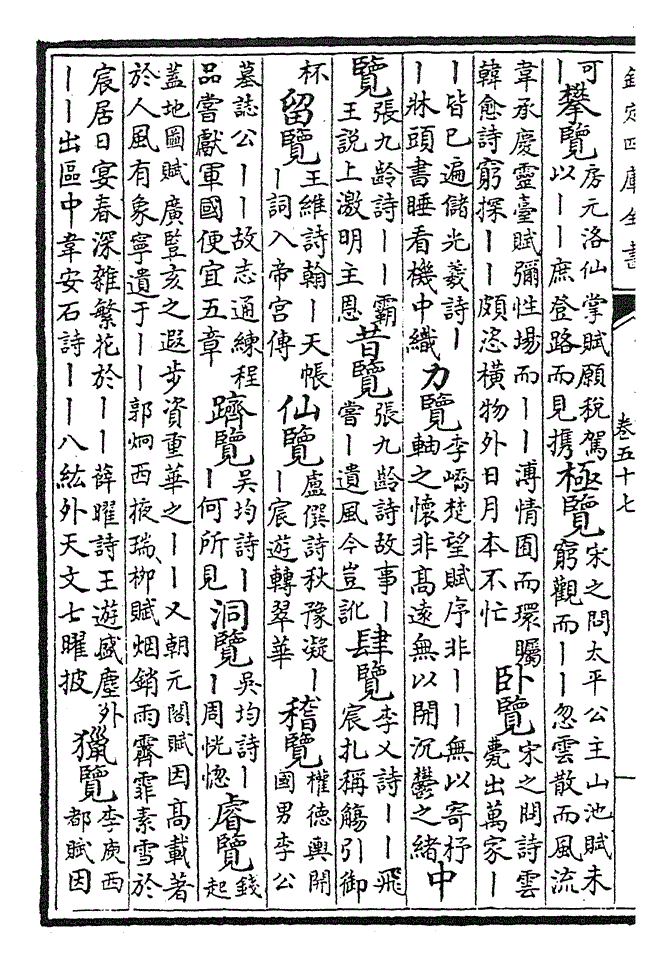 欽定四庫全書 卷五十七
可丨攀覽房元洛仙掌賦願稅駕以丨丨庶登路而見携極覽宋之問太平公主山池賦未窮觀而丨丨忽雲散而風流
韋承慶靈臺賦彌性場而丨丨溥情囿而環矚韓愈詩窮探丨丨頗恣橫物外日月本不忙卧覽宋之問詩雲薨出萬家丨
丨皆已遍儲光羲詩丨丨牀頭書睡看機中織力覽李嶠楚望賦序非丨丨無以寄杼軸之懷非高遠無以開沉鬱之緒中
覽張九齡詩丨丨霸王説上激明主恩昔覽張九齡詩故事丨嘗丨遺風今豈訛肆覽李乂詩丨丨飛宸札稱觴引御
杯留覽王維詩翰丨天帳丨詞入帝宮傳仙覽盧僎詩秋豫凝丨丨宸遊轉翠華稽覽權德輿開國男李公
墓誌公丨丨故志通練程品嘗獻軍國便宜五章躋覽吳均詩丨丨何所見洞覽吳均詩丨丨周恍惚睿覽錢起
蓋地圖賦廣豎亥之遐步資重華之丨丨又朝元閣賦因高載著於人風有象寧遺于丨丨郭炯西掖瑞柳賦烟銷雨霽霏素雪於
宸居日宴春深雜繁花於丨丨薛曜詩王遊盛塵外丨丨出區中韋安石詩丨丨八紘外天文七曜披獵覽李庾西都賦因